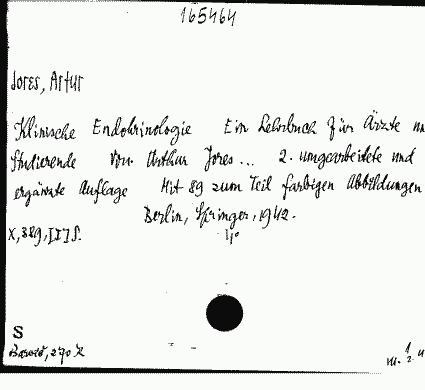 165464
Jores, Artur
Klinische Endokrinologie Ein Lehrbuch für Ärzte un
Studierende Von Arthur Jores... 2. umgearbeitete und
ergänzte Auflage Mit 89 zum Teil farbigen Abbildungen
Berlin, Springer, 1942.
X, 389, [I] S. 4°
S
270 K